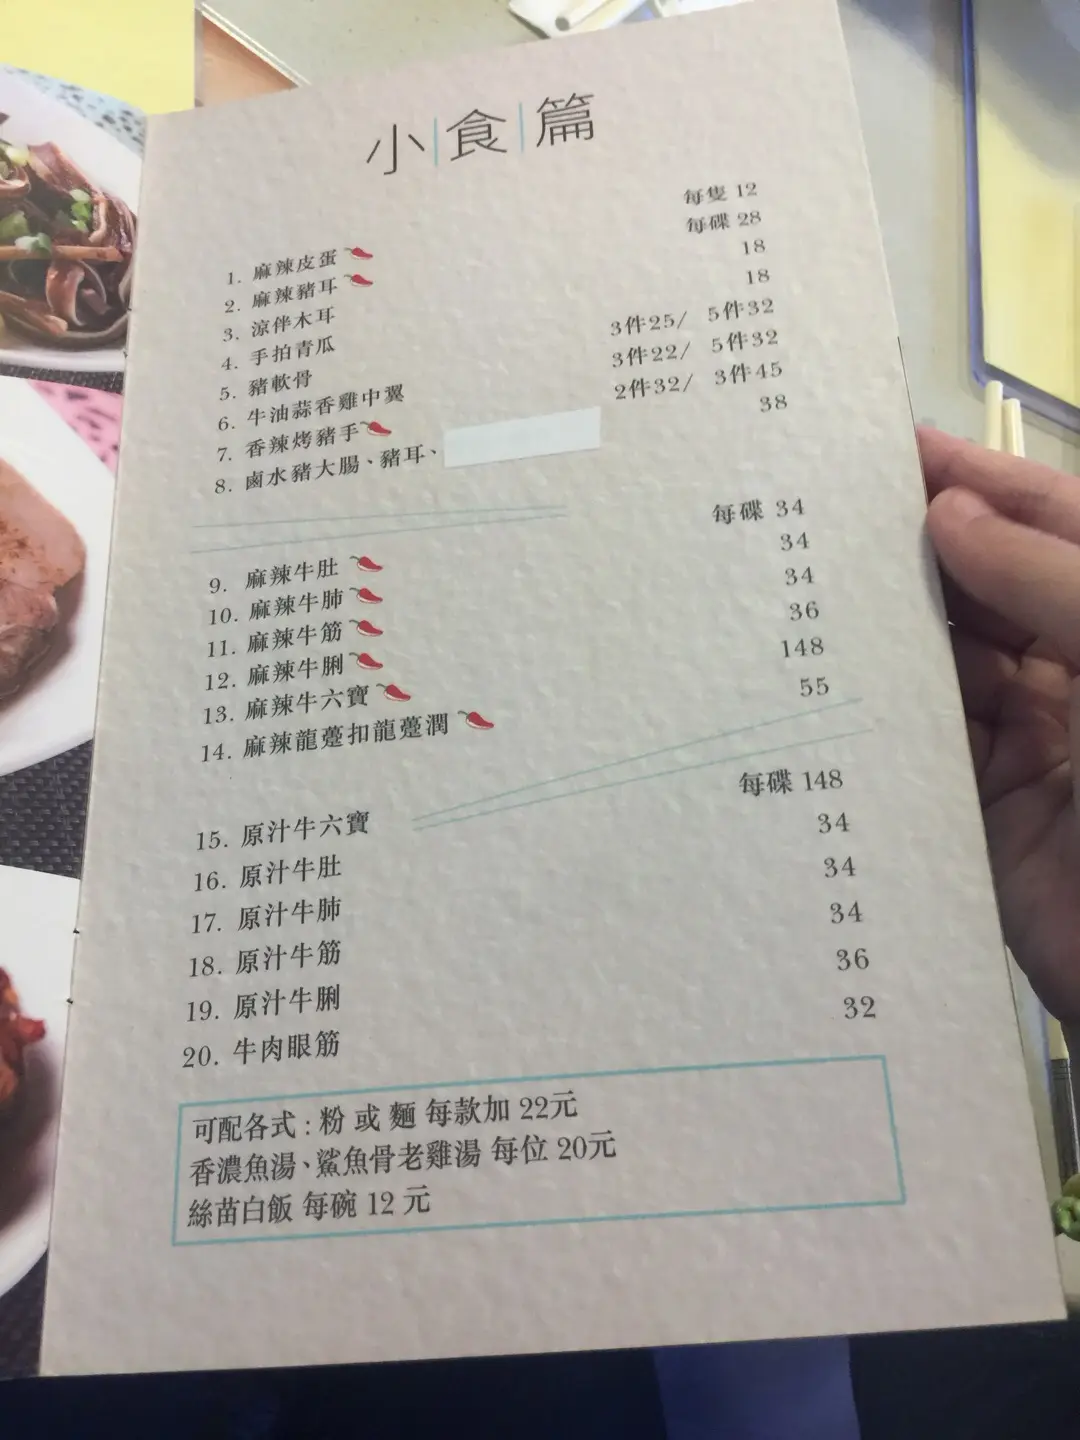 小食篇
1. 麻辣皮蛋 每隻 12
2. 麻辣豬耳 每碟 28
3. 涼伴木耳 18
4. 手拍青瓜 18
5. 豬軟骨 3件25/ 5件32
6. 牛油蒜香雞中翼 3件22/ 5件32
7. 香辣烤豬手 2件32/ 3件45
8. 鹵水豬大腸、豬耳、 38
9. 麻辣牛肚 每碟 34
10. 麻辣牛肺 34
11. 麻辣牛筋 34
12. 麻辣牛脷 36
13. 麻辣牛六寶 148
14. 麻辣龍躉扣龍躉潤 55
15. 原汁牛六寶 每碟 148
16. 原汁牛肚 34
17. 原汁牛肺 34
18. 原汁牛筋 34
19. 原汁牛脷 36
20. 牛肉眼筋 32
可配各式 : 粉 或 麵 每款加 22元
香濃魚湯、鯊魚骨老雞湯 每位 20元
絲苗白飯 每碗 12 元